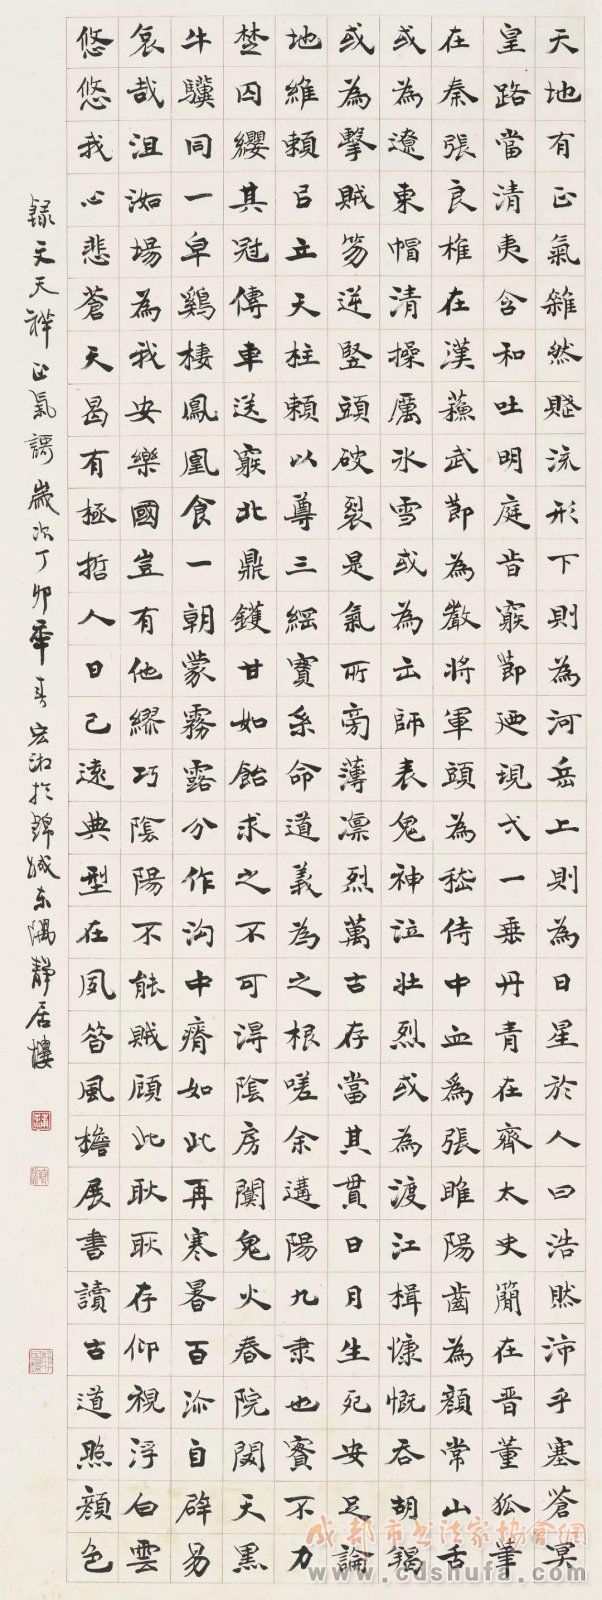 天地有正氣雜然賦流形下則為河岳上則為日星於人曰浩然沛乎塞蒼冥
皇路當清夷含和吐明庭旹窮節迺現弌一垂丹青在齊太史簡在晉董狐筆
在秦張良椎在漢蘇武節為嚴將軍頭為嵇侍中血為張睢陽齒為顏常山舌
或為遼東帽清操厲冰雪或為出師表鬼神泣壯烈或為渡江楫慷慨吞胡羯
或為擊賊笏逆豎頭破裂是氣所旁薄凛烈萬古存當其貫日月生死安足論
地維賴㠯立天柱賴以尊三綱實系命道義為之根嗟余遘陽九隶也實不力
楚囚纓其冠傳車送窮北鼎鑊甘如飴求之不可得陰房闃鬼火春院閟天黑
牛驥同一皁鷄棲鳳凰食一朝蒙霧露分作溝中瘠如此再寒暑百沴自辟易
哀哉沮洳場為我安樂國豈有他繆巧陰陽不能賊顧此耿耿存仰視浮白雲
悠悠我心悲蒼天曷有極哲人日已遠典型在夙昔風檐展書讀古道照顏色
錄文天祥正氣謌歲次丁卯年春宏湘於錦城东隅靜居樓
成都市书法家协會網
www.cdshufa.com